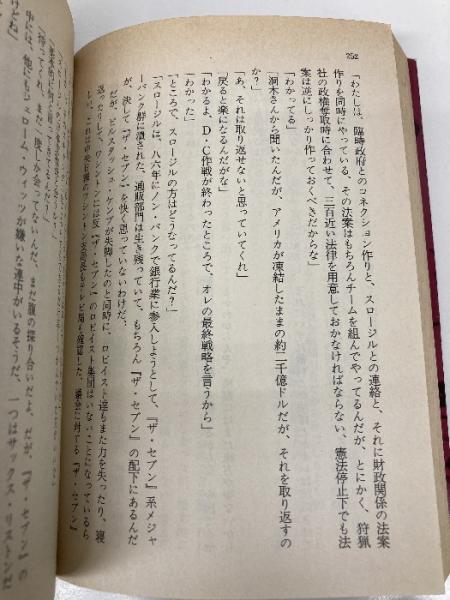 252
「わたしは、臨時政府とのコネクション作りと、スロージルとの連絡と、それに財政関係の法案
作りを同時にやっている、その法案はもちろんチームを組んでやってるんだが、とにかく、狩猟
社の政権奪取時に合わせて、三百近い法律を用意しておかなければならない、憲法停止下でも法
案は逆にしっかり作っておくべきだからな」
「わかってる」
「洞木さんから聞いたんだが、アメリカが凍結したままの約二千億ドルだが、それを取り返すの
か?」
「あ、それは取り返せないと思っていてくれ」
「戻ると楽になるんだがな」
「わかるよ、D・C作戦が終わったところで、オレの最終戦略を言うから」
「わかった」
「ところで、スロージルの方はどうだってるんだ?」
「スロージルは、八六年にノン・バンクで銀行業に参入しようとして、『ザ・セブン』系メジャ
ーバンク群に潰された、通販部門は生き残っていて、もちろん『ザ・セブン』の配下にあるんだ
が、決して『ザ・セブン』を快く思っていないわけだ、
だが、ビルスダッシュ・ケンプが失脚したのと同時に、ロビイスト達もまた力を失ったり、寝
返ったりして、ワシントンには反『ザ・セブン』のロビイスト集団はいないことになっているら
しい、これは中央日報のワシントン支局長もテレビ局も確認した、議会に対する『ザ・セブン』
「待ってくれ、まだ一度しか会ってないんだ、まだ腹の探り合いだよ、だが、『ザ・セブン』の
中には、他にもジェローム・ウィッツが嫌いな連中がいるそうだ、一つはサックス・リストンだ
けどね」